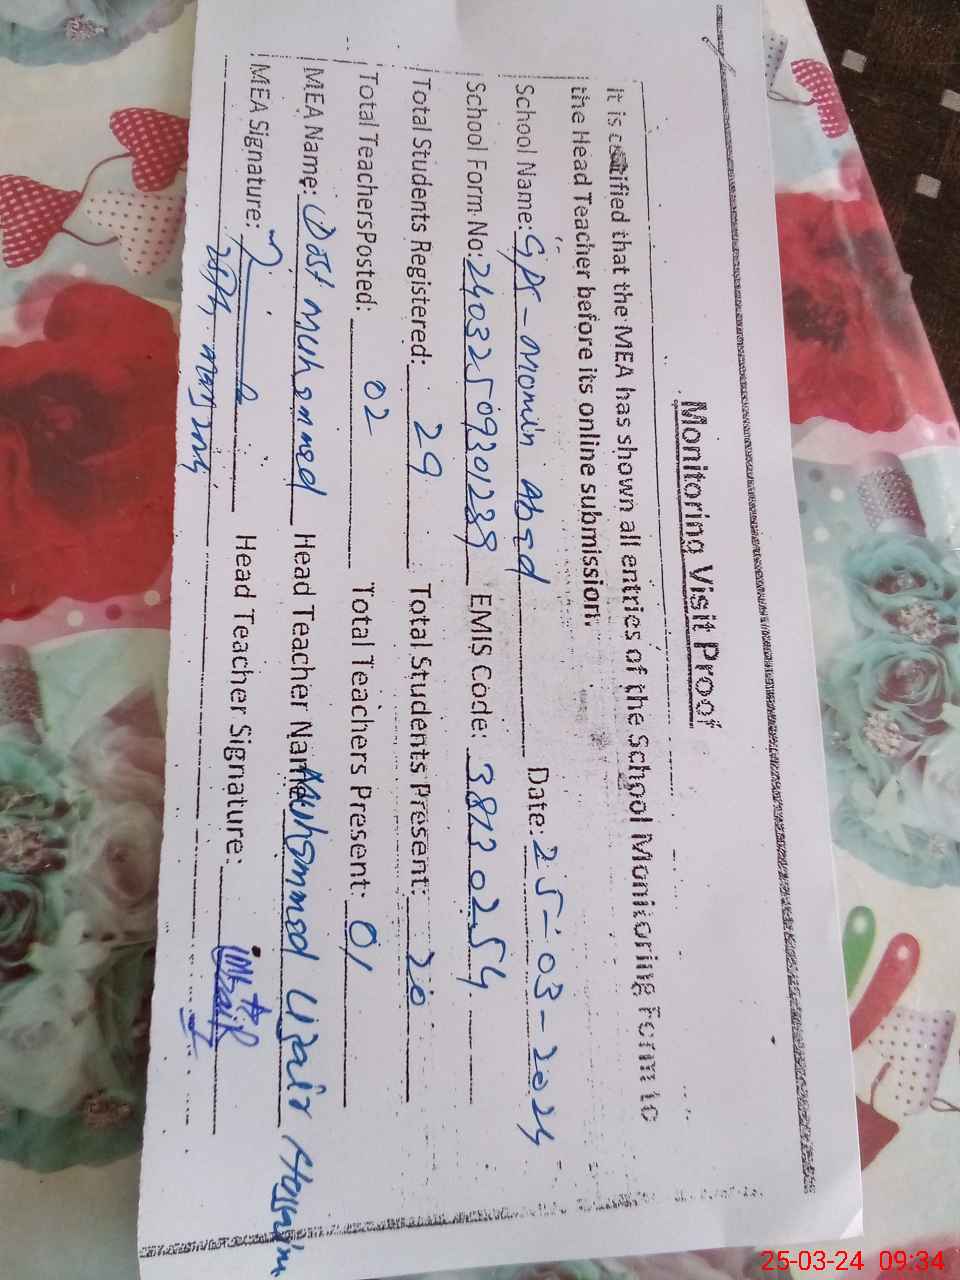 Monitoring Visit Proof
It is certified that the MEA has shown all entries of the School Monitoring Form to
the Head Teacher before its online submission.
School Name: GPS - Momin Abad Date: 25-03-2024
School Form No: EMIS Code: 38130254
Total Students Registered: 29 Total Students Present: 20
Total TeachersPosted: 02 Total Teachers Present: 01
MEA Name: Dost Muhammad Head Teacher Name Muhammad Uzair
MEA Signature: Head Teacher Signature:
25-03-24 09:34